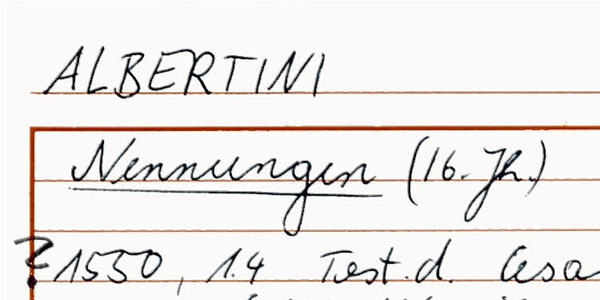 ALBERTINI
Nennungen (16. Jh.)
? 1550, 1.4 Test. d. Cesa